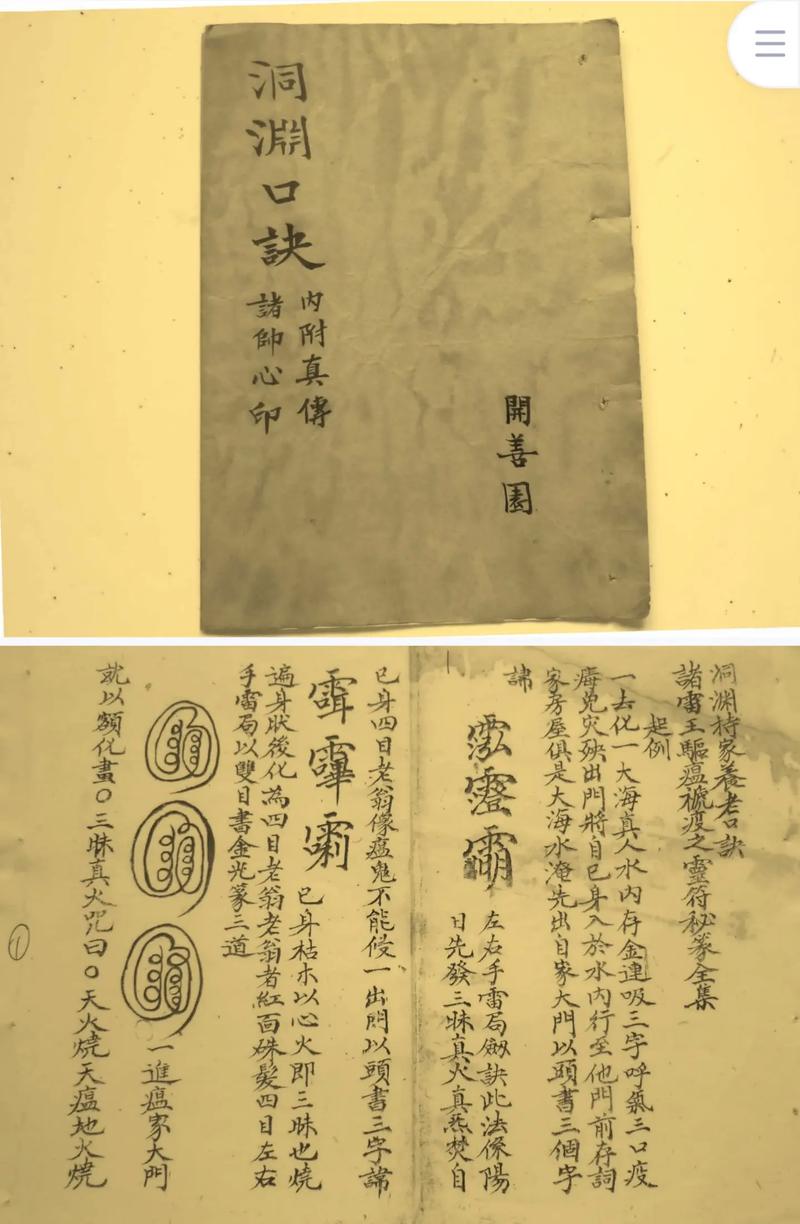 開善園
洞淵口訣
內附真傳
諸師心印
洞淵持家養老口訣
諸雷王驅瘟禠疫之靈符秘篆全集
起例
一去化一大海真人水內存金連吸三字呼氣三口疫
癦免灾殃出門將自己身入於水內行至他門前存詞
家房屋俱是大海水淹先出自家大門以頭書三個字
諱
左右手雷局劍訣此法係陽
日先發三昧真火真炁焚自
已身四目老翁像瘟鬼不能侵一出門以頭書三字諱
已身枯木以心火即三昧也燒
遍身狀後化為四目老翁老翁者紅面硃髮四目左右
手雷局以雙目書金光篆三道
一進瘟家大門
就以額化畫〇三昧真火咒曰〇天火燒天瘟地火燒
①